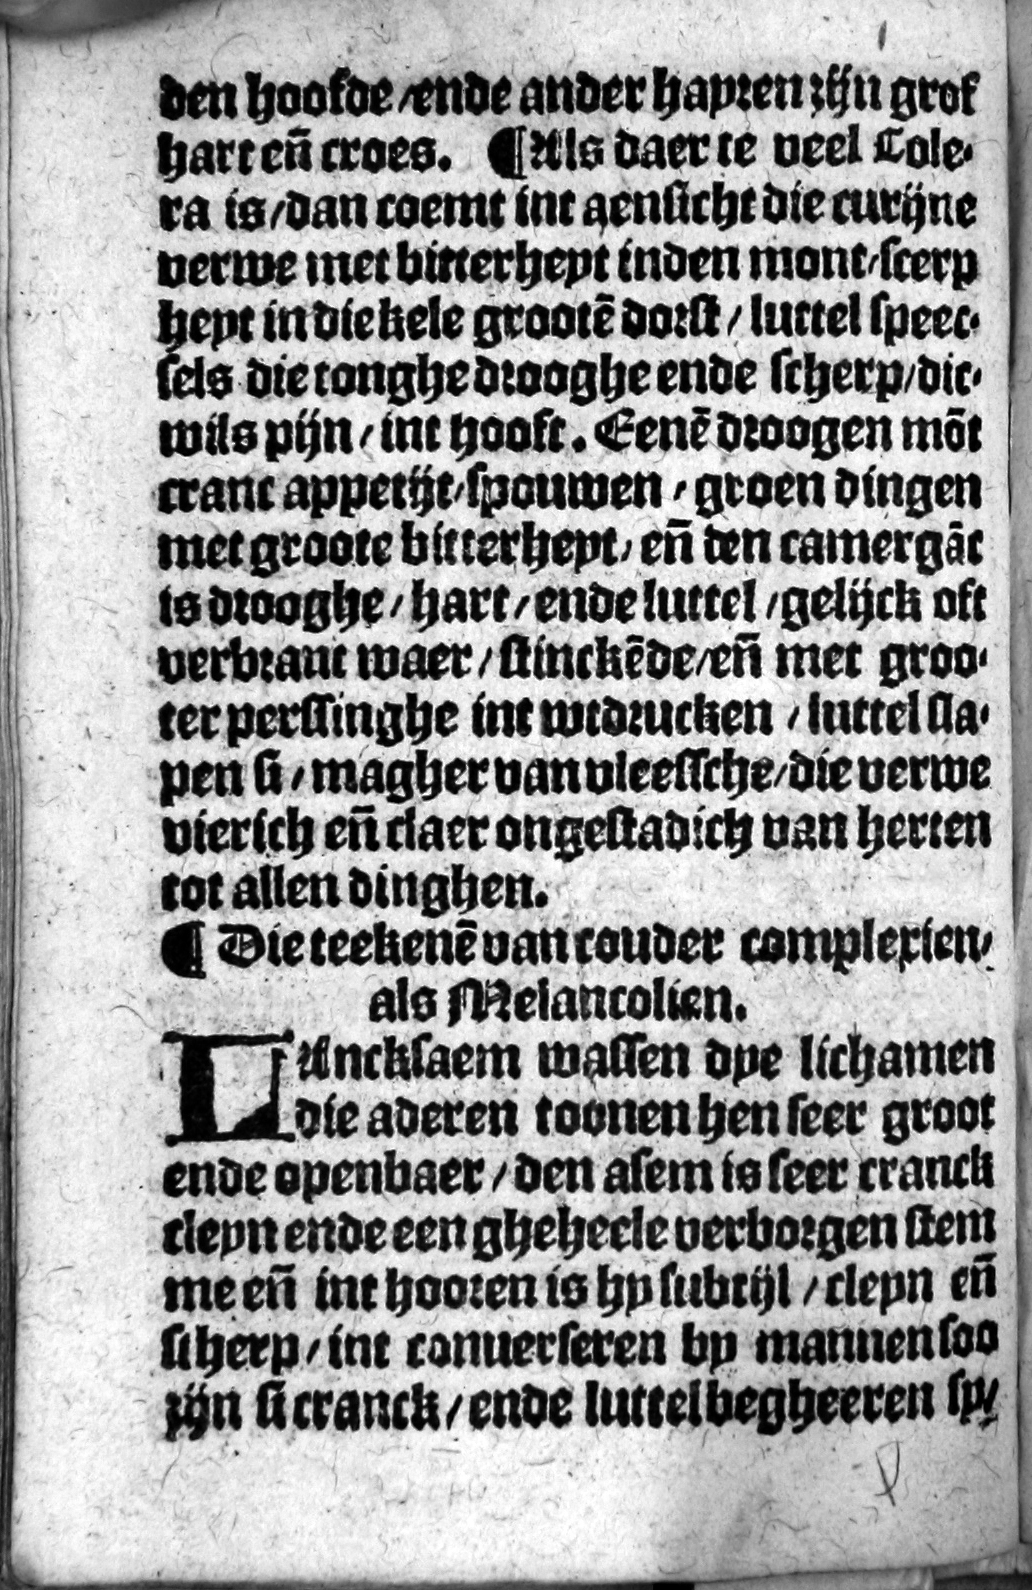 den hoofde/ende ander hayren zijn grof
hart eñ croes. ¶Als daer te veel Cole-
ra is/dan coemt int aensicht die curijne
verwe met bitterheyt inden mont/scerp
heyt in die kele grootē dorst/ luttel speec-
sels die tonghe drooghe ende scherp/dic-
wils pijn/ int hooft. Eenē droogen mōt
cranc appetijt/spouwen/ groen dingen
met groote bitterheyt/ eñ den camergāc
is drooghe/ hart/ ende luttel/gelijck oft
verbrant waer/ stinckēde/eñ met groo-
ter perssinghe int wtdrucken/ luttel sla-
pen si/ magher van vleessche/die verwe
vierich eñ claer ongestadich van herten
tot allen dinghen.
¶ Die teekenē van couder complexien/
als Melancolien.
LAncksaem wassen dye lichamen
die aderen toonen hen seer groot
ende openbaer/ den asem is seer cranck
cleyn ende een gheheele verborgen stem
me eñ int hooren is hy subtijl/ cleyn eñ
scherp/ int conuerseren by mannen soo
zijn si cranck/ ende luttel begheeren sy/